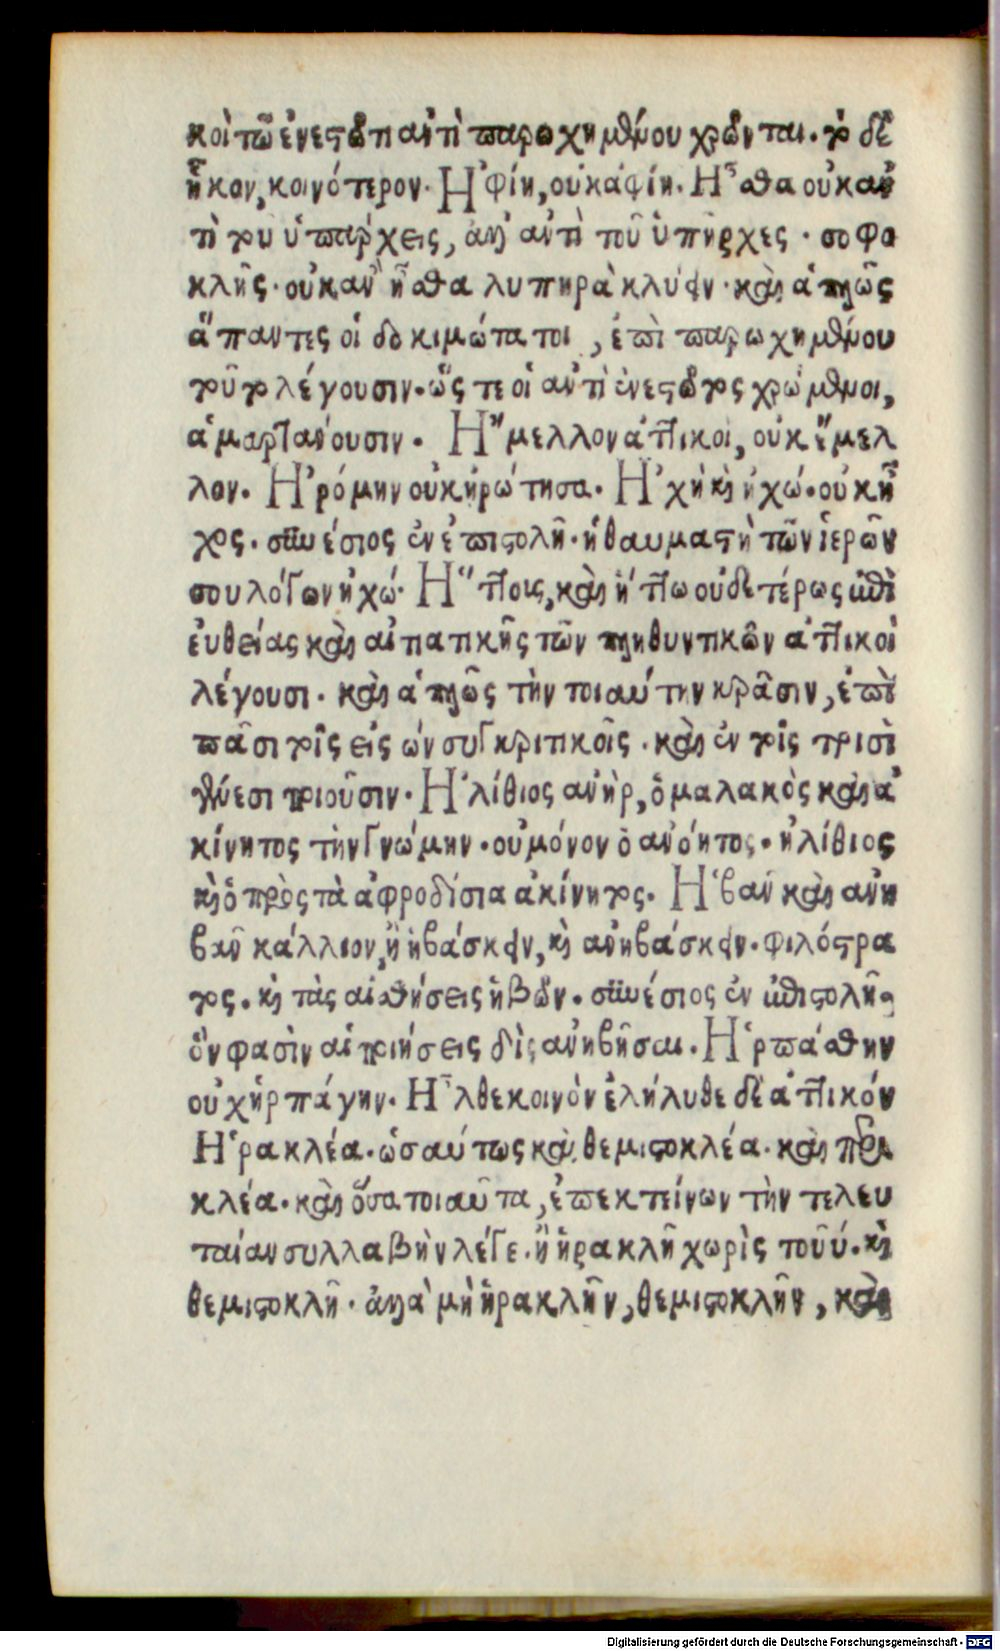 κοὶ τῷ ἐνεστῶτι ἀντὶ παρωχημένου χρῶνται. τὸ δὲ
ἧκον, κοινότερον. Ἠφίη, οὐκ ἀφίη. Ἦσθα οὐκ ἀν
τὶ τοῦ ὑπάρχεις, ἀλλ' ἀντὶ τοῦ ὑπῆρχες. σοφο
κλῆς. οὐκ ἂν ἦσθα λυπηρὰ κλύειν. καὶ ἁπλῶς
ἅπαντες οἱ δοκιμώτατοι, ἐπὶ παρωχημένου
τοῦτο λέγουσιν. ὥστε οἱ ἀντὶ ἐνεστῶτος χρώμενοι,
ἁμαρτάνουσιν. Ἤμελλον ἀττικοὶ, οὐκ ἔμελ
λον. Ἠρόμην οὐκ ἠρώτησα. Ἠχὴ καὶ ἠχώ. οὐκ ἦ
χος. συνέσιος ἐν ἐπιστολῆ. ἡ θαυμαστὴ τῶν ἱερῶν
σου λόγων ἠχώ. Ἥττοις, καὶ ἥττω οὐδετέρως ἐπὶ
εὐθείας καὶ αἰτιατικῆς τῶν πληθυντικῶν ἀττικοὶ
λέγουσι. καὶ ἁπλῶς τὴν τοιαύτην κρᾶσιν, ἐπὶ
πᾶσι τοῖς εἰς ων συγκριτικοῖς. καὶ ἐν τοῖς τρισὶ
γένεσι ποιοῦσιν. Ἠλίθιος ἀνὴρ, ὁ μαλακὸς καὶ ἀ
κίνητος τὴν γνώμην. οὐ μόνον ὁ ἀνόητος. ἠλίθιος
καὶ ὁ πρὸς τὰ ἀφροδίσια ἀκίνητος. Ἡβᾶν καὶ ἀνη
βᾶν κάλλιον, ἢ ἡβάσκειν, καὶ ἀνηβάσκειν. φιλόστρα
τος. καὶ τὰς αἰσθήσεις ἡβῶν. συνέσιος ἐν ἐπιστολῆ.
ὃν φασὶν αἱ ποιήσεις δὶς ἀνηβῆσαι. Ἡρπάσθην
οὐχ ἡρπάγην. Ἦλθε κοινὸν ἐλήλυθε δὲ ἀττικόν
Ἡρακλέα. ὡσαύτως καὶ θεμιστοκλέα. καὶ περι
κλέα. καὶ ὅσα τοιαῦτα, ἐπεκτείνων τὴν τελευ
ταίαν συλλαβὴν λέγε. ἢ ἡρακλῆ χωρὶς τοῦ ν. καὶ
θεμιστοκλῆ. ἀλλὰ μὴ ἡρακλῆν, θεμιστοκλῆν, καὶ
Digitalisierung gefördert durch die Deutsche Forschungsgemeinschaft - DFG